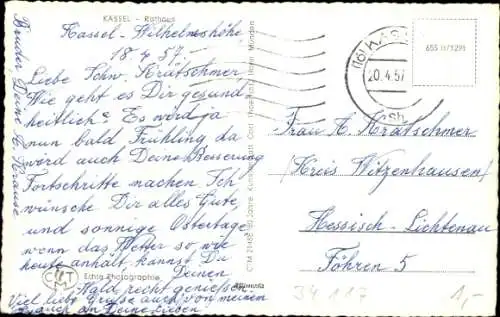 KASSEL - Rathaus
Kassel-Wilhelmshöhe
18.4.57.-
Liebe Schw. Kratschmer
Wie geht es Dir gesund
heitlich? Es wird ja
nun bald Frühling da
wird auch Deine Besserung
Fortschritte machen. Ich
wünsche Dir alles Gute
und sonnige Ostertage
wenn das Wetter so wie
heute anhält kannst Du
Deinen
Wald recht genießen.
Viel liebe Grüße auch von meinem
Bruder, Deine A. Krause
auch an Deine Lieben
Echte Photographie
(16) KASSEL
20.4.57
655 II/1291
Frau A. Kratschmer
(Kreis Witzenhausen)
Hessisch-Lichtenau
Föhren 5
34117
1,-